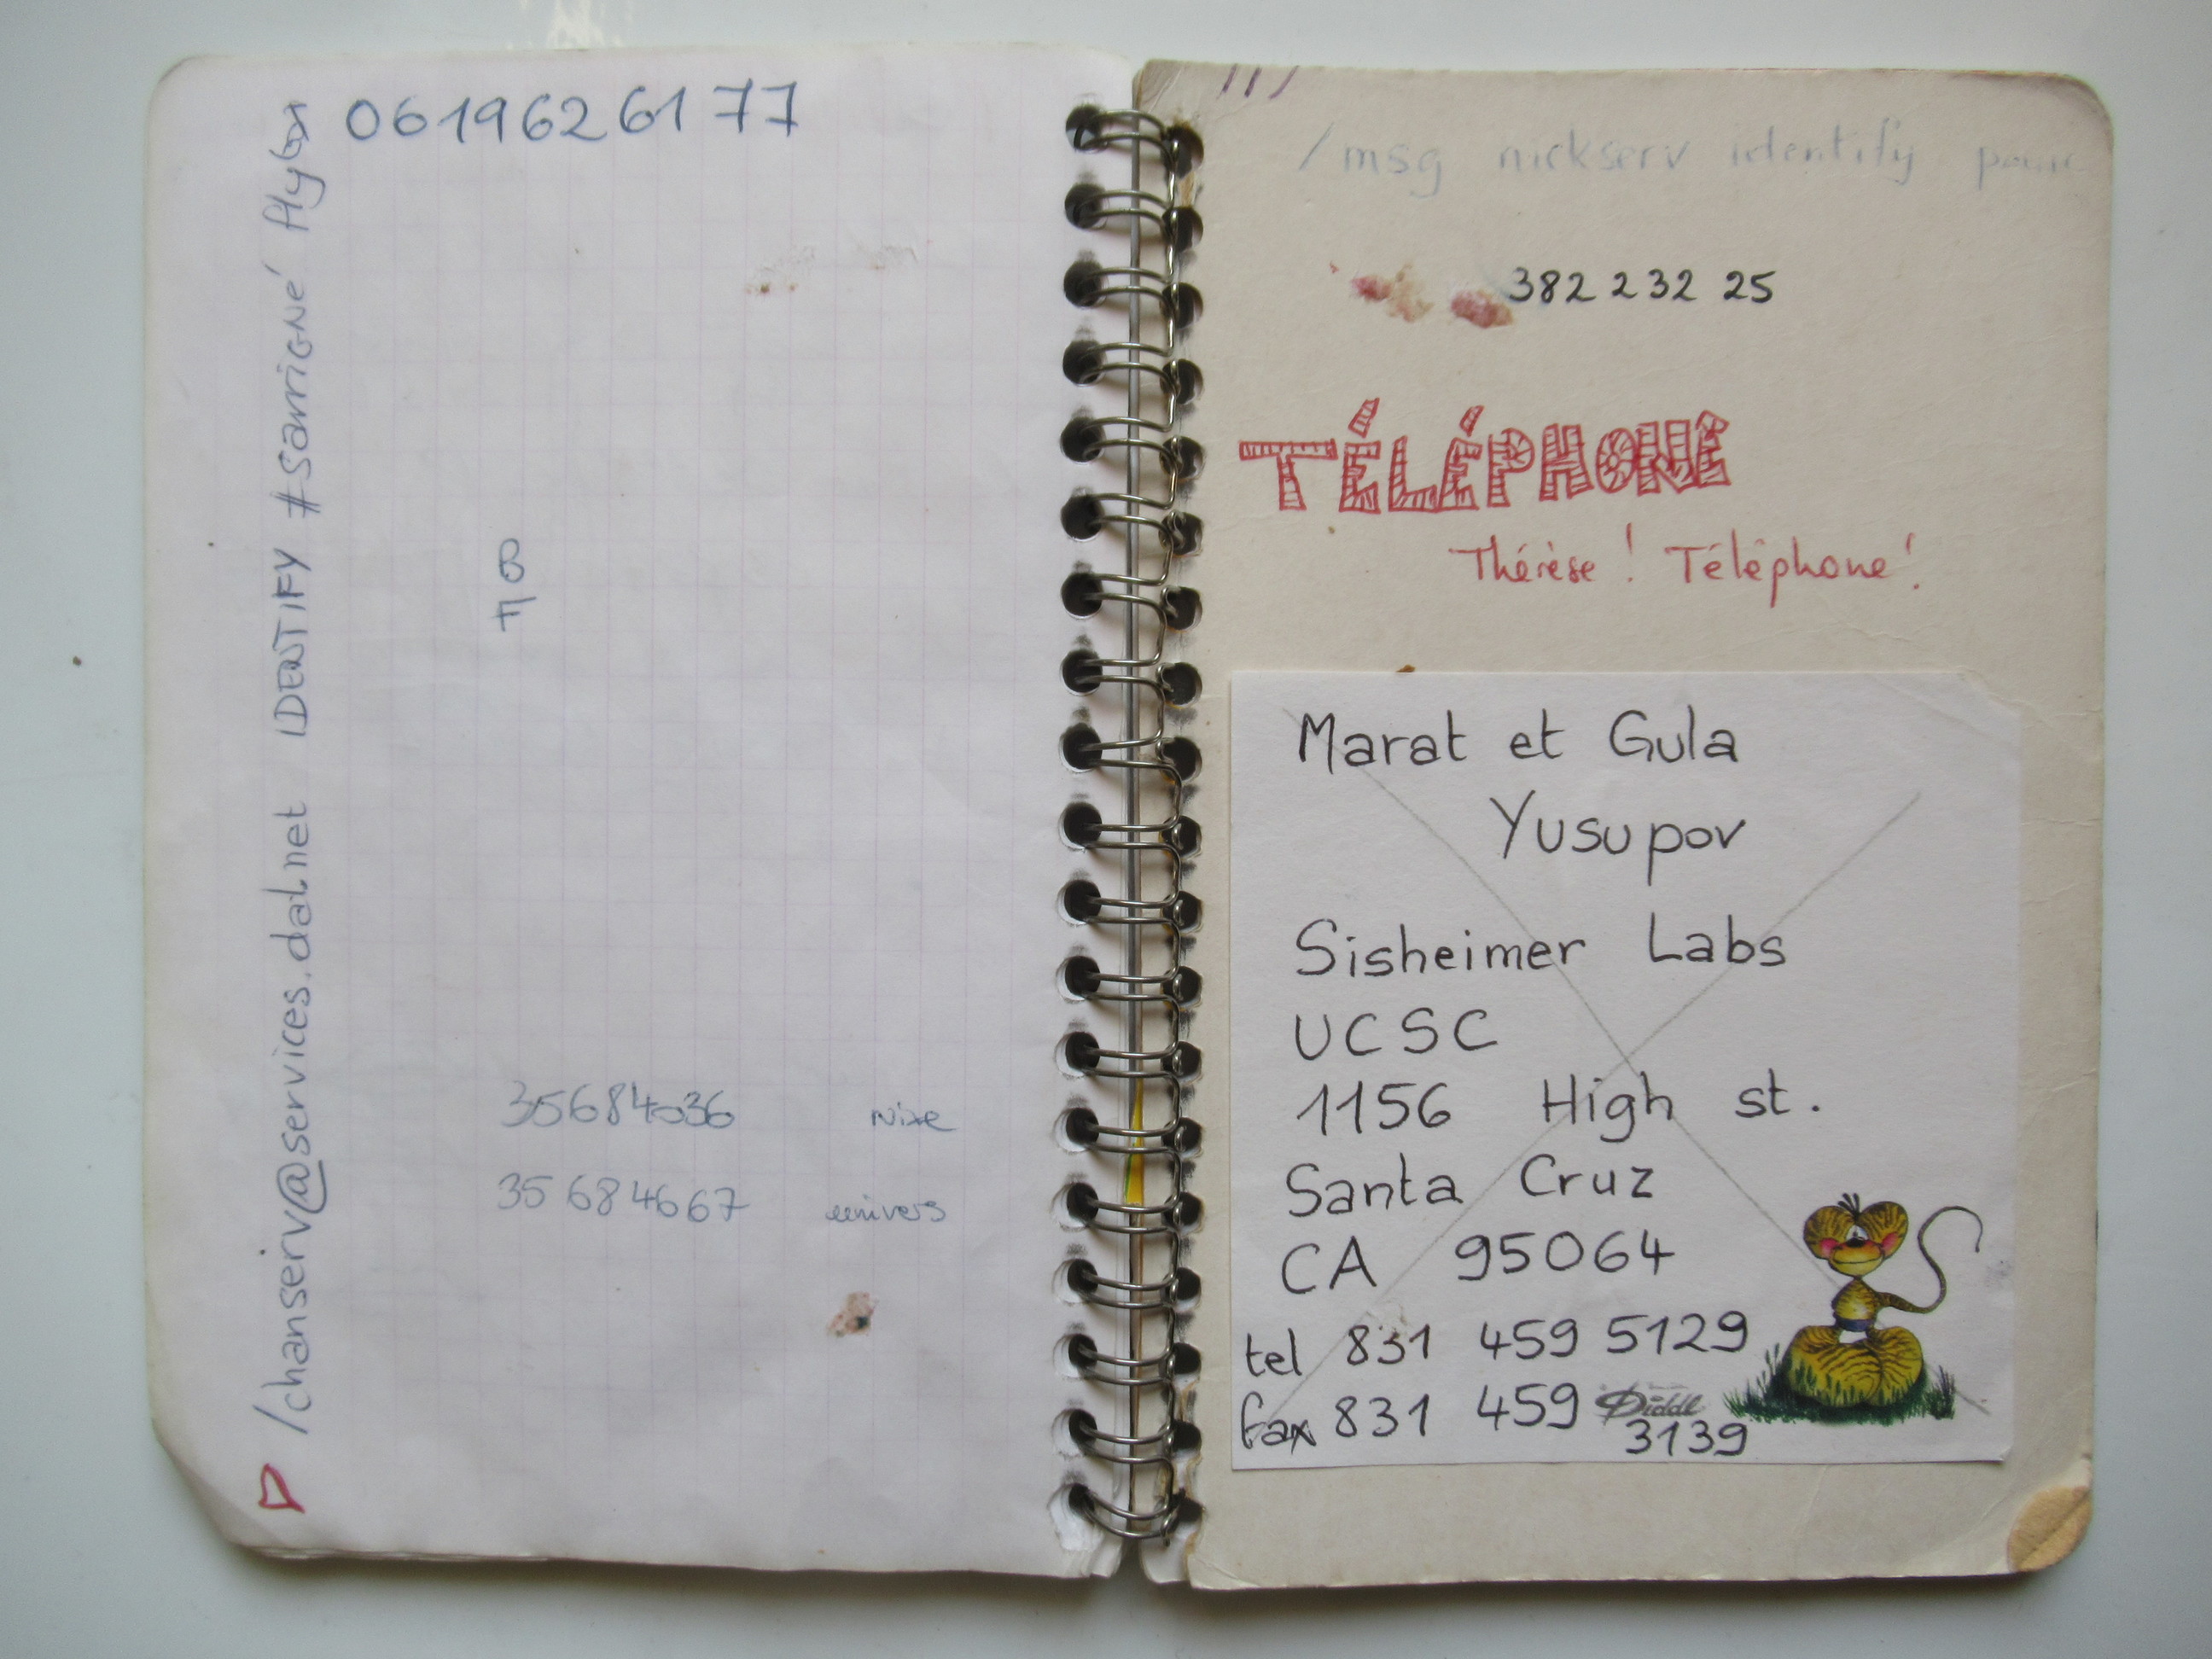 0619626177
/chanserv@services.dal.net IDENTIFY #Savrigné
B
F
35684036 Nixe
35 684667 univers
/msg nickserv identify
382 232 25
TÉLÉPHONE
Thérèse! Téléphone!
Marat et Gula
Yusupov
Sisheimer Labs
UCSC
1156 High st.
Santa Cruz
CA 95064
tel 831 459 5129
fax 831 459
Diddl
3139